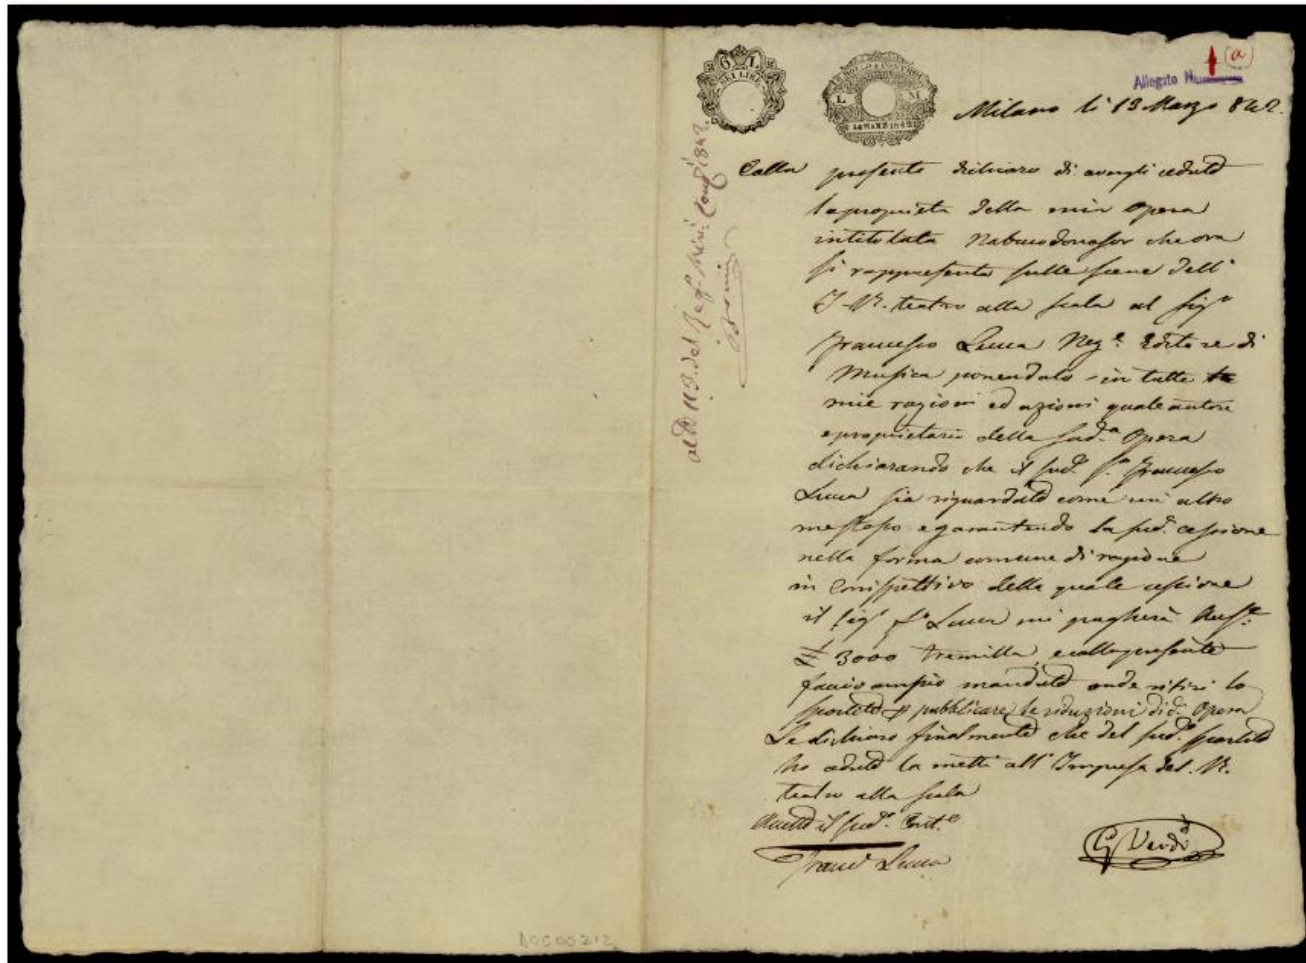 6 L
SEI LIRE
BOLLO A CONTROL
L. M.
14 MARZ 1842
Allegato N. 1 (a)
Milano li 13 Marzo 842.
Colla presente dichiaro di avergli ceduto
la proprietà della mia Opera
intitolata Nabucodonosor che ora
si rappresenta sulle scene dell'
I. R. teatro alla scala al Sigr
Francesco Lucca Nege. Editore di
Musica ponendolo in tutte le
mie ragioni ed azioni quale autore
e proprietario della sud.a Opera
dichiarando che il sud.o S.r Francesco
Lucca sia riguardato come un altro
me stesso e garantendo la sud.a cessione
nella forma comune di ragione
in Corrispettivo della quale cessione
il Sigr F.o Lucca mi pagherà Aust.e
£ 3000 tremilla, e colla presente
faccio ampio mandato onde ritiri lo
spartito p pubblicare le riduzioni di d.a Opera
Le dichiaro finalmente che del sud.o spartito
ho ceduto la metti all'Impresa del R.
teatro alla scala
Accetto il sud.o Cont.o
Franc.o Lucca
G Verdi
al N 113. del 1842.
DOC00212